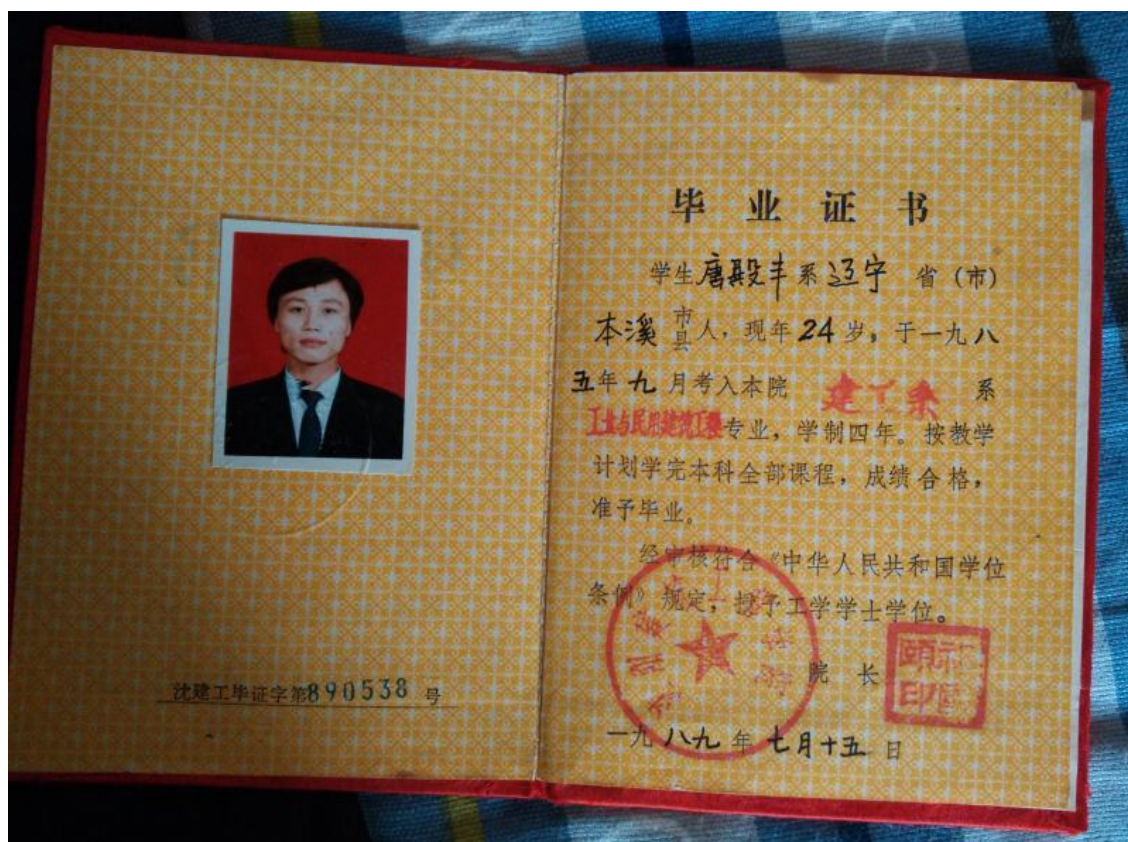 沈建工毕证字第890538号
毕业证书
学生唐殿丰系辽宁 省(市)
本溪 市县人，现年24岁，于一九八
五年九月考入本院 建工系 系
工业与民用建筑工程专业，学制四年。按教学
计划学完本科全部课程，成绩合格，
准予毕业。
经审核符合《中华人民共和国学位
条例》规定，授予工学学士学位。
院长
一九八九年七月十五日